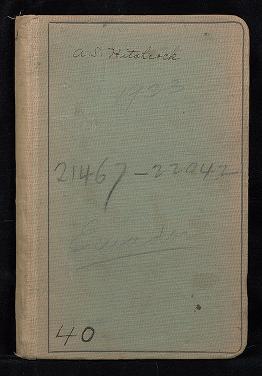 A. S. Hitchcock
1923
21467 – 22042
Ecuador
40